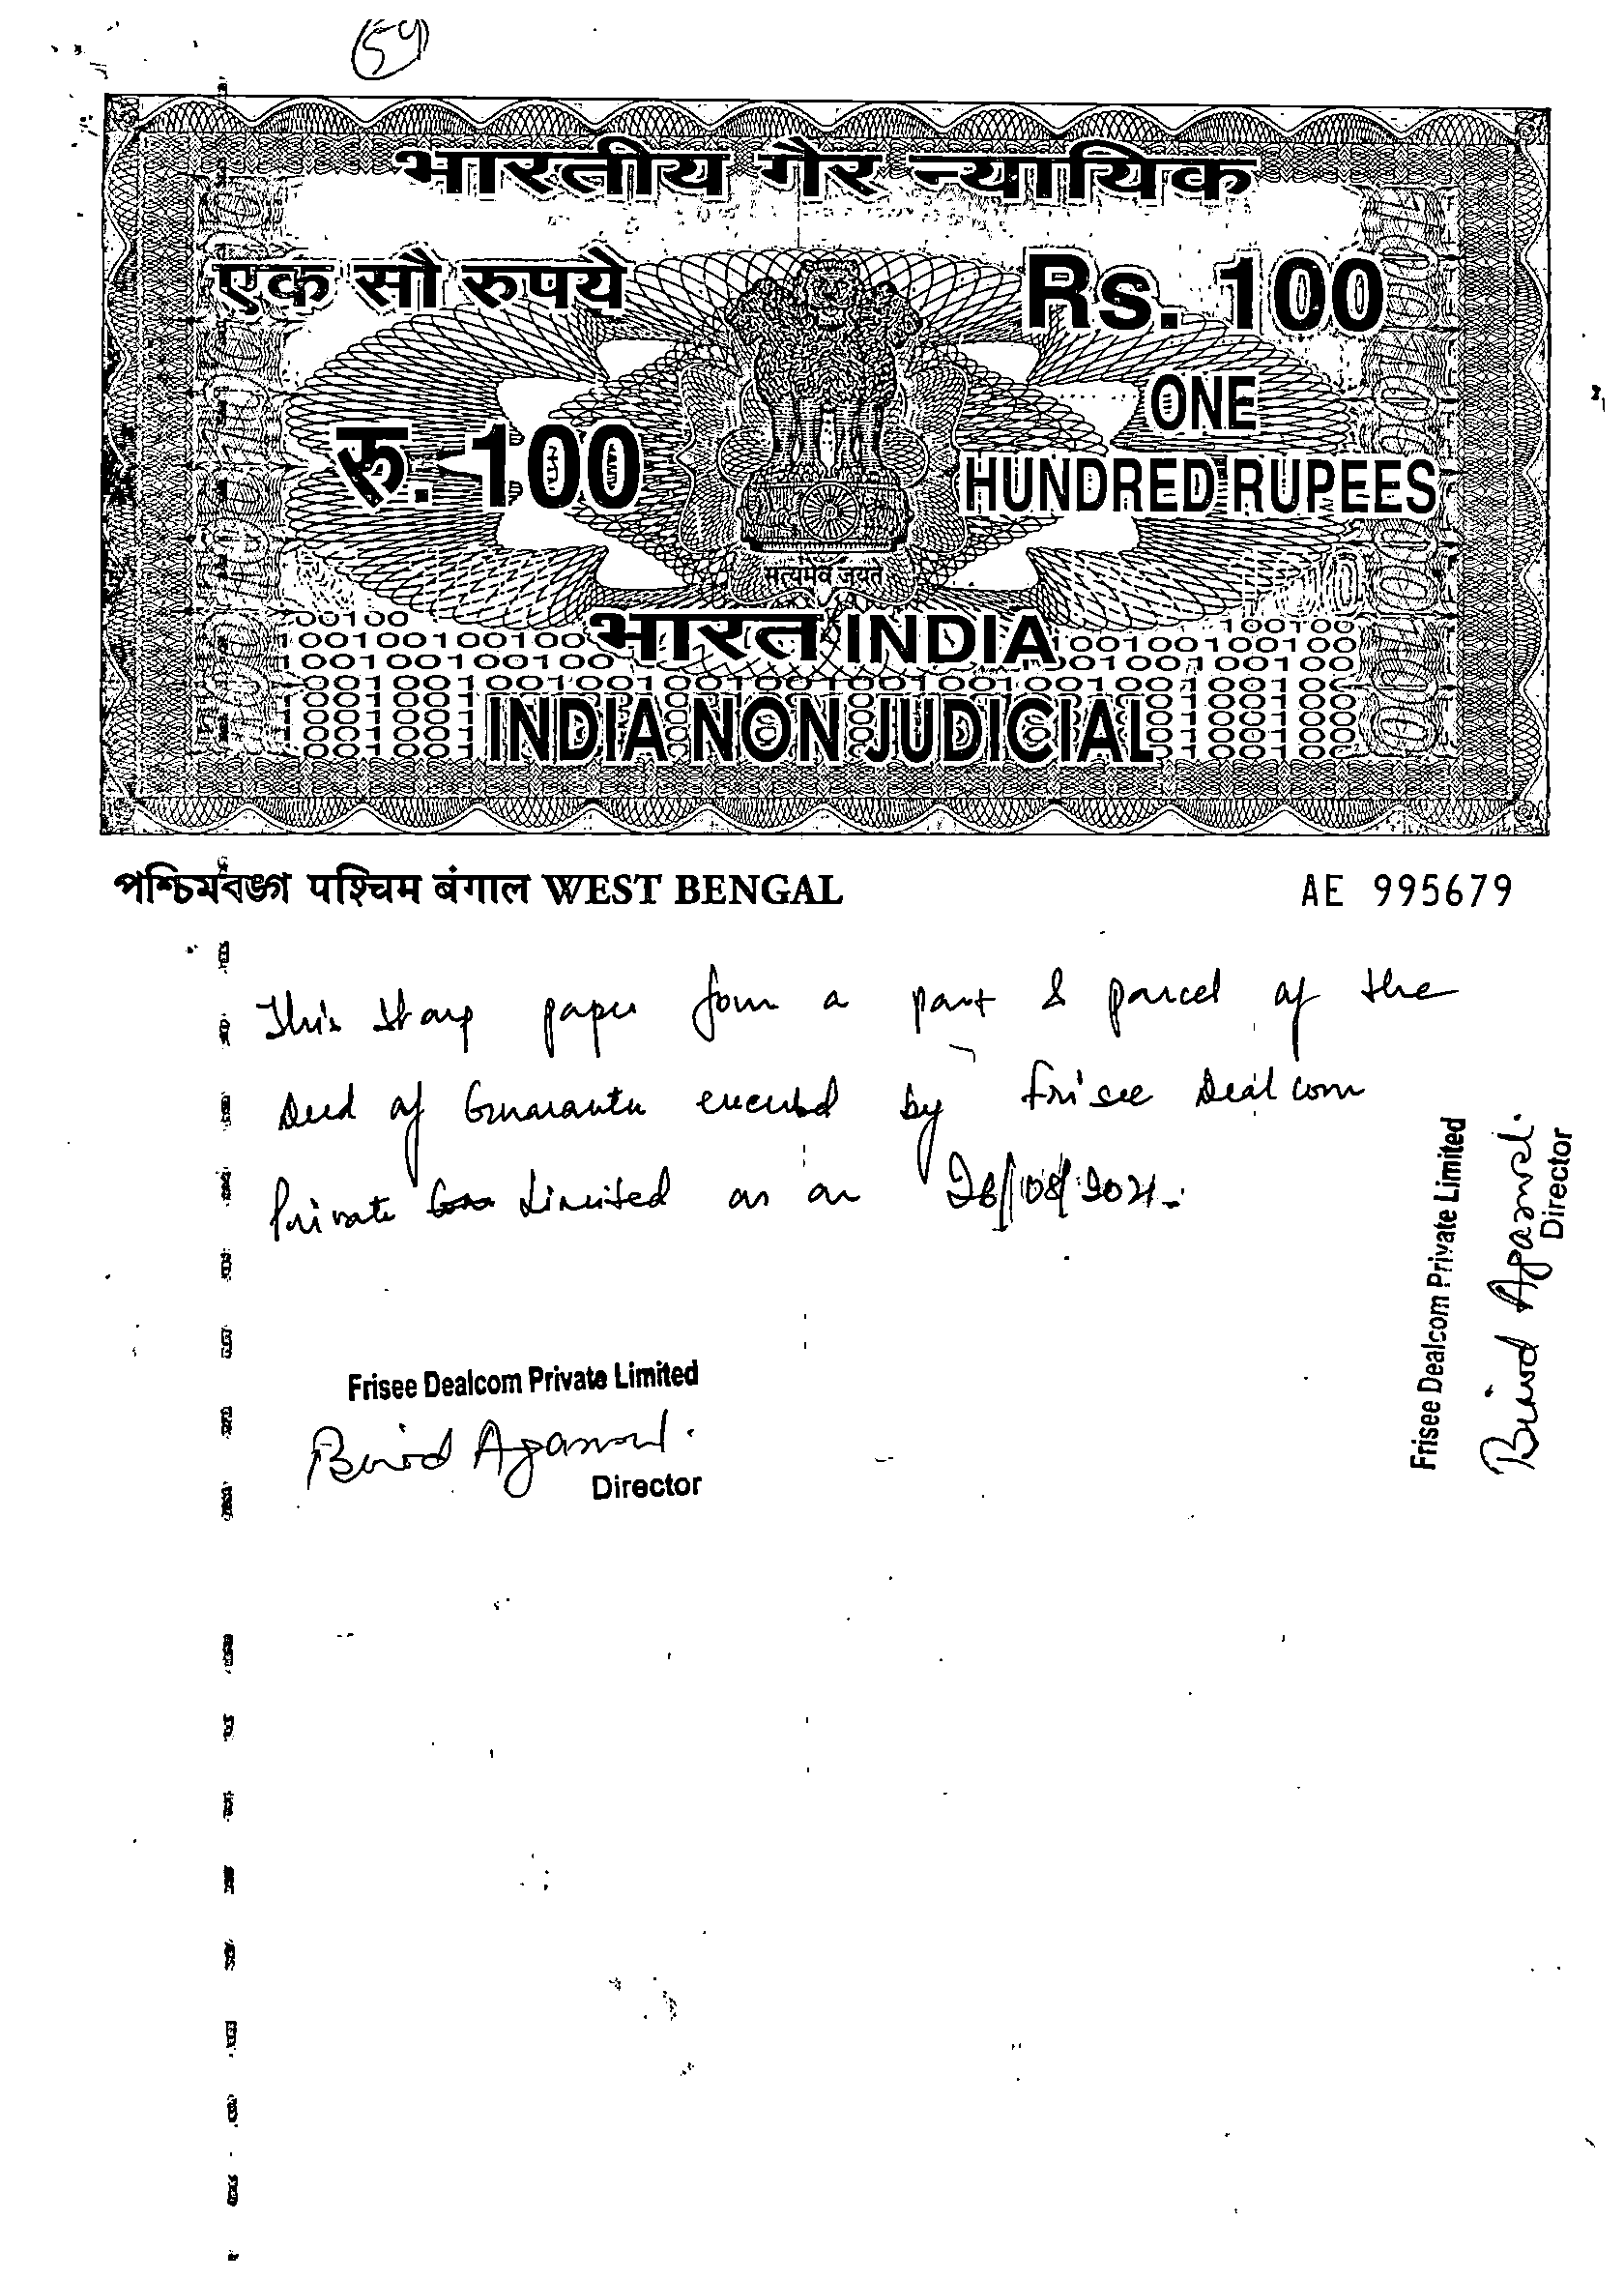 54
भारतीय गैर न्यायिक
एक सौ रुपये
Rs. 100
रु. 100
ONE
HUNDRED RUPEES
सत्यमेव जयते
भारत INDIA
INDIA NON JUDICIAL
পশ্চিমবঙ্গ पश्चिम बंगाल WEST BENGAL
AE 995679
This stamp paper form a part & parcel of the
Deed of Guarantee executed by Frisee Dealcom
Private Limited as on 26/08/2021.
Frisee Dealcom Private Limited
Binod Agarwal.
Director
Frisee Dealcom Private Limited
Binod Agarwal.
Director